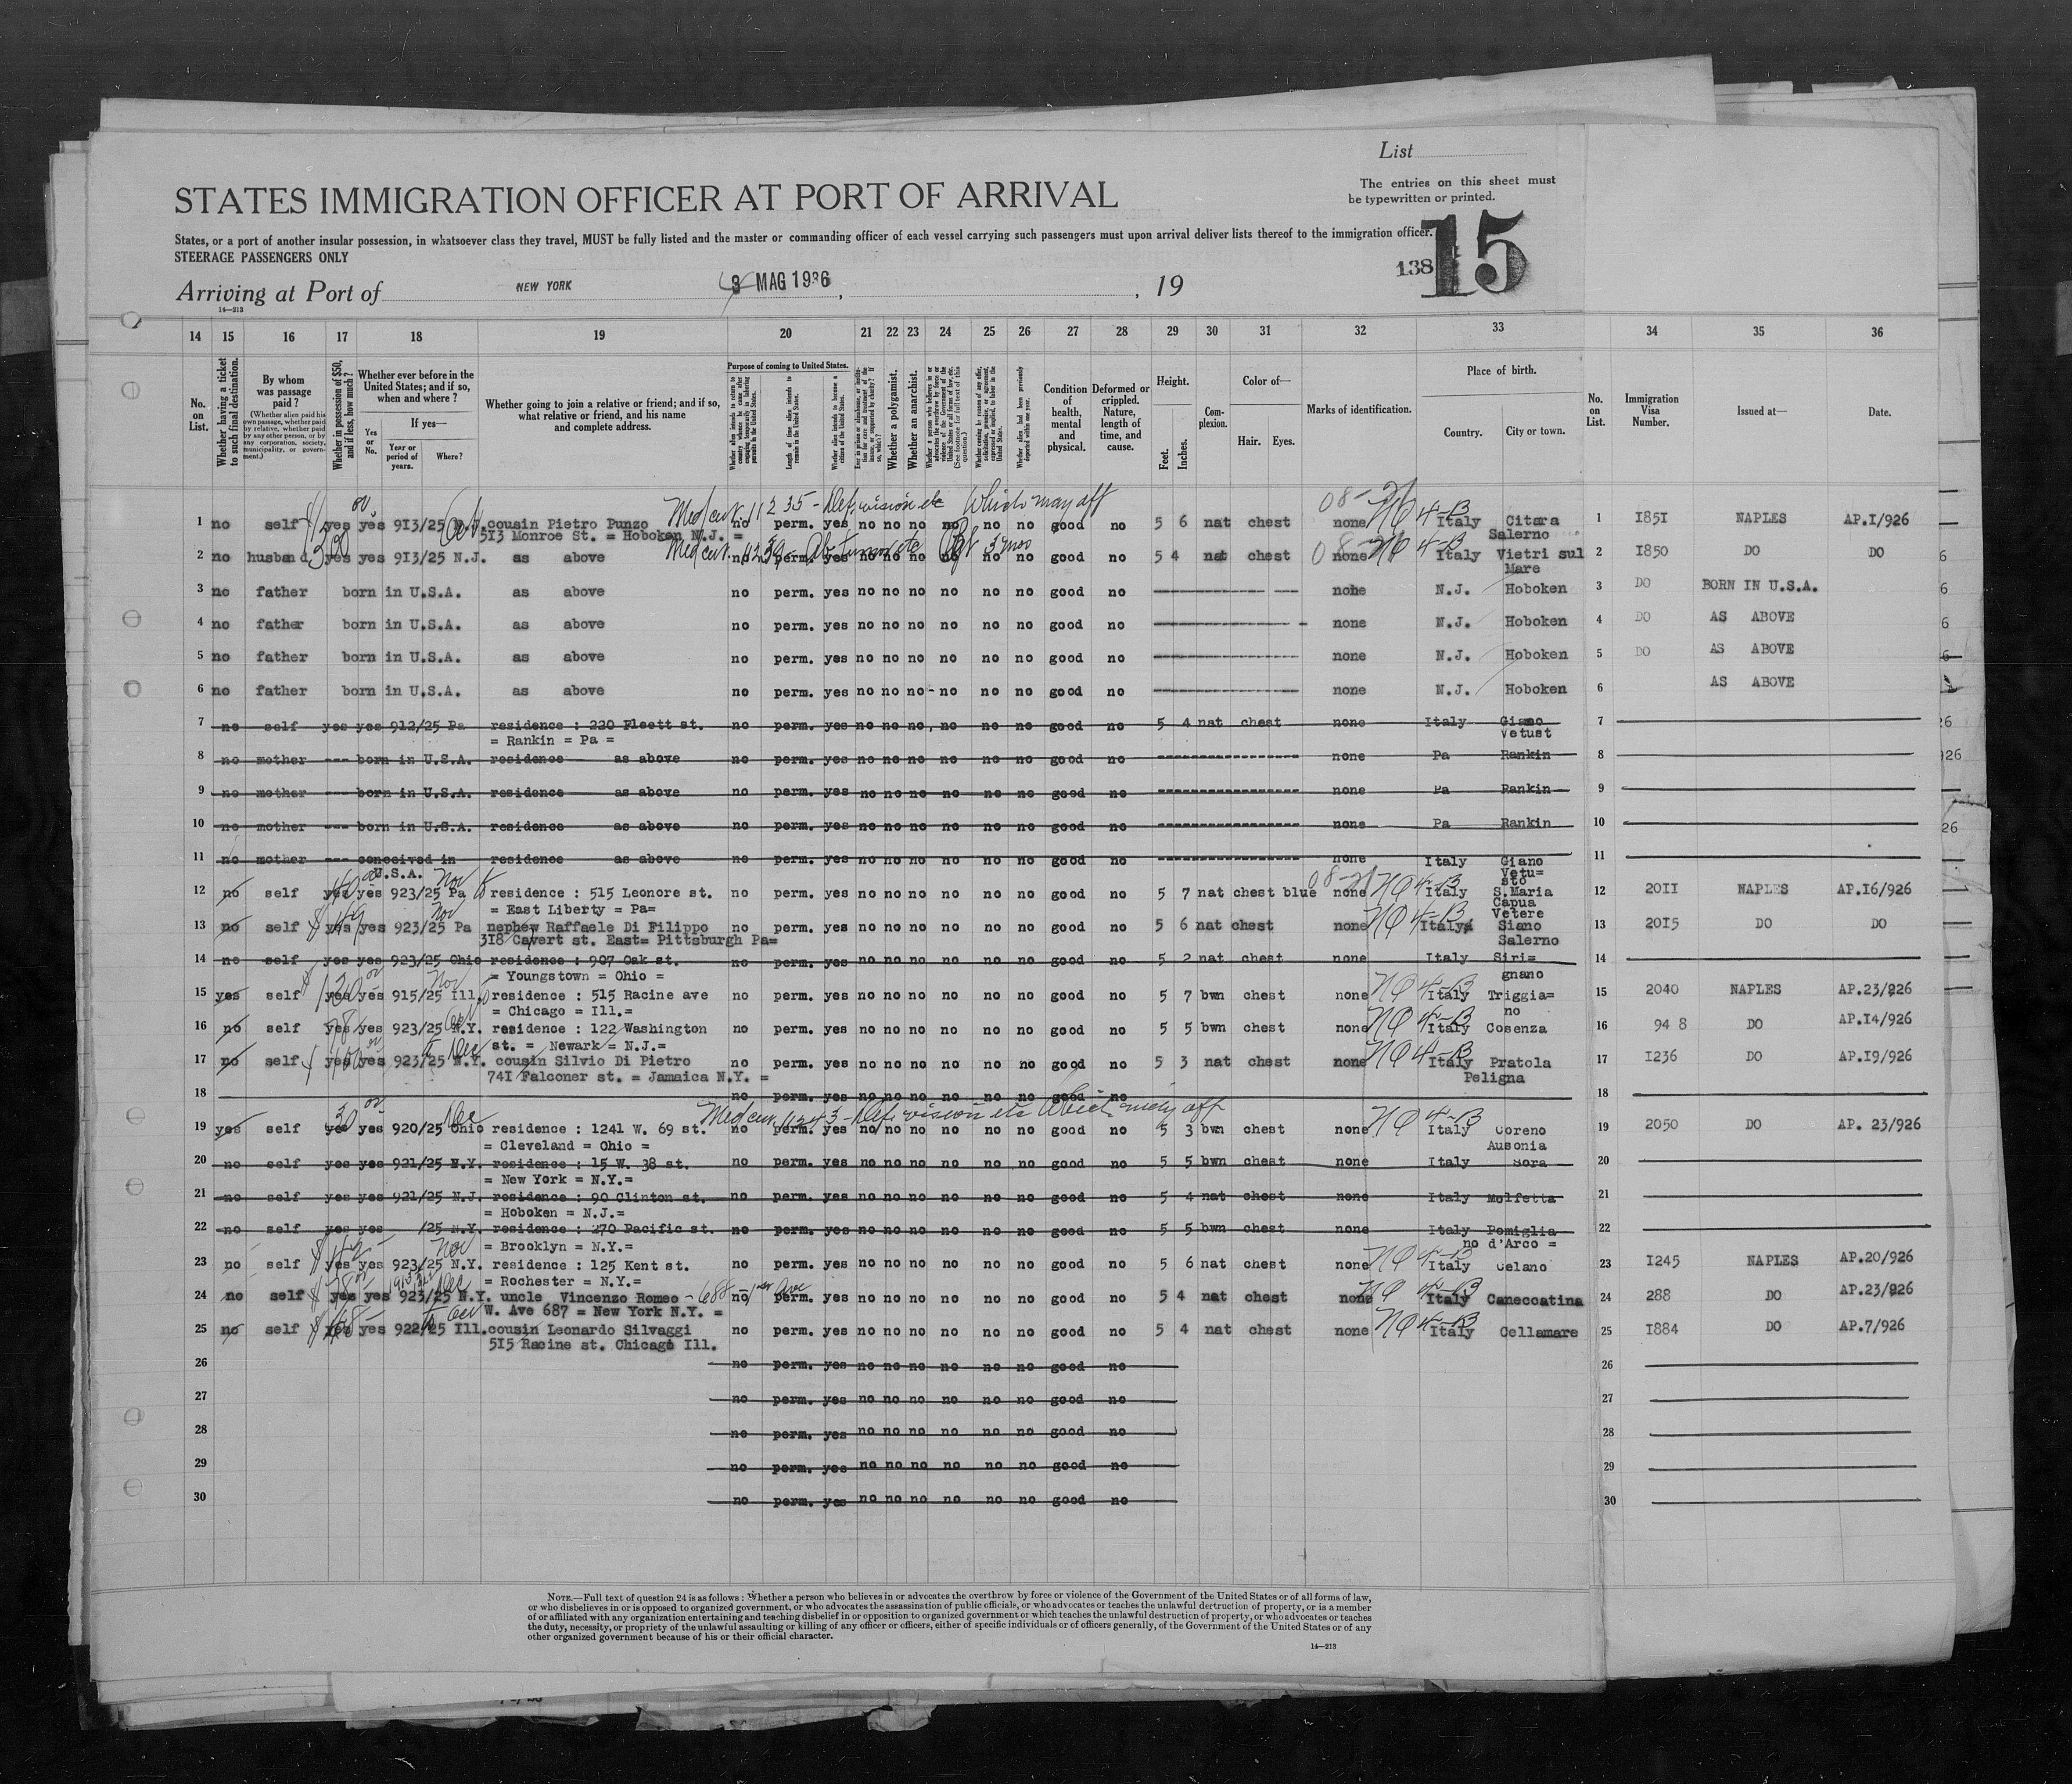 List
STATES IMMIGRATION OFFICER AT PORT OF ARRIVAL
The entries on this sheet must
be typewritten or printed.
States, or a port of another insular possession, in whatsoever class they travel, MUST be fully listed and the master or commanding officer of each vessel carrying such passengers must upon arrival deliver lists thereof to the immigration officer.
STEERAGE PASSENGERS ONLY
138 15
Arriving at Port of NEW YORK MAG 1936, , 19
14—213
14 15 16 17 18 19 20 21 22 23 24 25 26 27 28 29 30 31 32 33 34 35 36
No. on List.
Whether having a ticket to such final destination.
By whom was passage paid?
(Whether alien paid his own passage, whether paid by relative, whether paid by any other person, or by any corporation, society, municipality, or government.)
Whether in possession of $50, and if less, how much?
Whether ever before in the United States; and if so, when and where?
If yes—
Yes or No.
Year or period of years.
Where?
Whether going to join a relative or friend; and if so, what relative or friend, and his name and complete address.
Purpose of coming to United States.
Length of time alien intends to remain in the United States.
Whether alien intends to become a citizen of the United States.
Whether a polygamist.
Whether an anarchist.
Condition of health, mental and physical.
Deformed or crippled. Nature, length of time, and cause.
Height.
Feet.
Inches.
Complexion.
Color of—
Hair. Eyes.
Marks of identification.
Place of birth.
Country.
City or town.
No. on List.
Immigration Visa Number.
Issued at—
Date.
Med cert. 11235 - Def. vision etc Which may aff
1 no self yes yes 913/25 N.J. cousin Pietro Punzo no perm. yes no no no no no no good no 5 6 nat chest none Italy Citara 1 1851 NAPLES AP.1/926
513 Monroe St. = Hoboken N.J. = Salerno
2 no husband yes yes 913/25 N.J. as above no perm. yes no no no no no no good no 5 4 nat chest none Italy Vietri sul 2 1850 DO DO
Mare
3 no father born in U.S.A. as above no perm. yes no no no no no no good no none N.J. Hoboken 3 DO BORN IN U.S.A.
4 no father born in U.S.A. as above no perm. yes no no no no no no good no none N.J. Hoboken 4 DO AS ABOVE
5 no father born in U.S.A. as above no perm. yes no no no no no no good no none N.J. Hoboken 5 DO AS ABOVE
6 no father born in U.S.A. as above no perm. yes no no no - no no no good no none N.J. Hoboken 6 AS ABOVE
7 no self yes yes 912/25 Pa residence : 220 Fleett st. no perm. yes no no no no no no good no 5 4 nat chest none Italy Giano 7
= Rankin = Pa = Vetust
8 no mother --- born in U.S.A. residence as above no perm. yes no no no no no no good no none Pa Rankin 8
9 no mother --- born in U.S.A. residence as above no perm. yes no no no no no no good no none Pa Rankin 9
10 no mother --- born in U.S.A. residence as above no perm. yes no no no no no no good no none Pa Rankin 10
11 no mother --- conceived in residence as above no perm. yes no no no no no no good no none Italy Giano 11
U.S.A. Vetu=
sto
12 no self yes yes 923/25 Pa residence : 515 Leonore st. no perm. yes no no no no no no good no 5 7 nat chest blue none Italy S.Maria 12 2011 NAPLES AP.16/926
= East Liberty = Pa= Capua
Vetere
13 no self yes yes 923/25 Pa nephew Raffaele Di Filippo no perm. yes no no no no no no good no 5 6 nat chest none Italy Siano 13 2015 DO DO
318 Cavert st. East= Pittsburgh Pa= Salerno
14 no self yes yes 923/25 Ohio residence : 907 Oak st. no perm. yes no no no no no no good no 5 2 nat chest none Italy Siri= 14
= Youngstown = Ohio = gnano
15 yes self yes yes 915/25 Ill. residence : 515 Racine ave no perm. yes no no no no no no good no 5 7 bwn chest none Italy Triggia= 15 2040 NAPLES AP.23/926
= Chicago = Ill.= no
16 no self yes 923/25 N.Y. residence : 122 Washington no perm. yes no no no no no no good no 5 5 bwn chest none Italy Cosenza 16 94 8 DO AP.14/926
st. = Newark = N.J.=
17 no self yes yes 923/25 N.Y. cousin Silvio Di Pietro no perm. yes no no no no no no good no 5 3 nat chest none Italy Pratola 17 1236 DO AP.19/926
741 Falconer st. = Jamaica N.Y. = Peligna
18 no perm. yes no no no no no no good no 18
Med cert. 11243 - Def. vision etc Which may aff
19 yes self yes yes 920/25 Ohio residence : 1241 W. 69 st. no perm. yes no no no no no no good no 5 3 bwn chest none Italy Coreno 19 2050 DO AP. 23/926
= Cleveland = Ohio = Ausonia
20 no self yes yes 921/25 N.Y. residence : 15 W. 38 st. no perm. yes no no no no no no good no 5 5 bwn chest none Italy Sora 20
= New York = N.Y.=
21 no self yes yes 921/25 N.J. residence : 90 Clinton st. no perm. yes no no no no no no good no 5 4 nat chest none Italy Molfetta 21
= Hoboken = N.J.=
22 no self yes yes /25 N.Y. residence : 270 Pacific st. no perm. yes no no no no no no good no 5 5 bwn chest none Italy Pomiglia 22
= Brooklyn = N.Y.= no d'Arco =
23 no self yes yes 923/25 N.Y. residence : 125 Kent st. no perm. yes no no no no no no good no 5 6 nat chest none Italy Celano 23 1245 NAPLES AP.20/926
= Rochester = N.Y.=
24 no self yes yes 923/25 N.Y. uncle Vincenzo Romeo - 688 - 1st Ave no perm. yes no no no no no no good no 5 4 nat chest none Italy Caneccatina 24 288 DO AP.23/926
W. Ave 687 = New York N.Y. =
25 no self yes yes 922/25 Ill. cousin Leonardo Silvaggi no perm. yes no no no no no no good no 5 4 nat chest none Italy Cellamare 25 1884 DO AP.7/926
515 Racine st. Chicago Ill.
26 no perm. yes no no no no no no good no 26
27 no perm. yes no no no no no no good no 27
28 no perm. yes no no no no no no good no 28
29 no perm. yes no no no no no no good no 29
30 no perm. yes no no no no no no good no 30
NOTE.—Full text of question 24 is as follows: Whether a person who believes in or advocates the overthrow by force or violence of the Government of the United States or of all forms of law,
or who disbelieves in or is opposed to organized government, or who advocates the assassination of public officials, or who advocates or teaches the unlawful dertruction of property, or is a member
of or affiliated with any organization entertaining and teaching disbelief in or opposition to organized government or which teaches the unlawful destruction of property, or who advocates or teaches
the duty, necessity, or propriety of the unlawful assaulting or killing of any officer or officers, either of specific individuals or of officers generally, of the Government of the United States or of any
other organized government because of his or their official character.
14—213